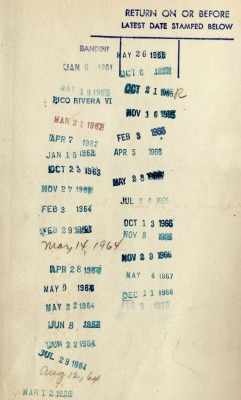 RETURN ON OR BEFORE
LATEST DATE STAMPED BELOW
BANDINI
JAN 5 1961
MAY 19 1962
PICO RIVERA VI
MAR 21 1962
APR 7 1962
JAN 15 1963
OCT 23 1963
NOV 27 1963
FEB 3 1964
FEB 29 1964
May 14, 1964
APR 28 1964
MAY 9 1964
MAY 22 1964
JUN 8 1964
JUN 22 1964
JUL 29 1964
Aug 12, 64
MAR 12
MAY 26 1965
OCT 6
OCT 21 1965 R
NOV 16 1965
FEB 3 1966
APR 5 1966
MAY 23 1966
JUL 1966
OCT 13 1966
NOV 8 1966
NOV 29 1966
MAY 4 1967
DEC 11 1966
FEB 3